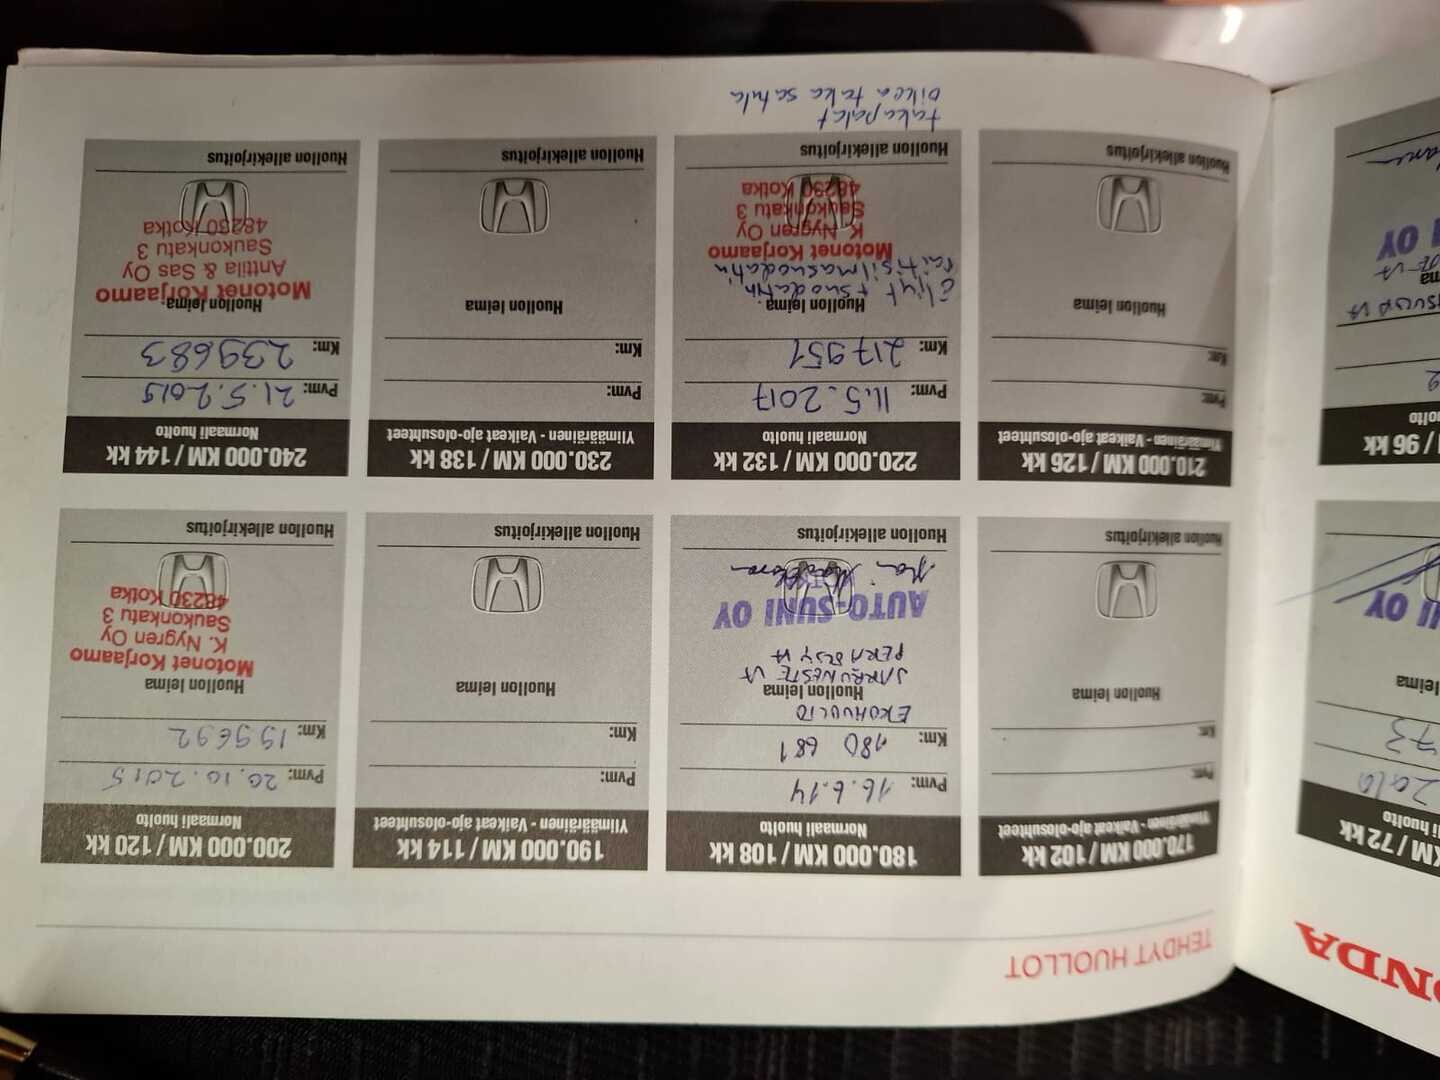 TEHDYT HUOLLOT
170.000 KM / 102 kk
Ylimääräinen - Vaikeat ajo-olosuhteet
Pvm:
Km:
Huollon leima
Huollon allekirjoitus
180.000 KM / 108 kk
Normaali huolto
Pvm: 16.6.14
Km: 180 681
EKOHUOLTO
Huollon leima
JARRUNESTE VT
PERÄ ÖLJY VT
AUTO-SUNI OY
Huollon allekirjoitus
190.000 KM / 114 kk
Ylimääräinen - Vaikeat ajo-olosuhteet
Pvm:
Km:
Huollon leima
Huollon allekirjoitus
200.000 KM / 120 kk
Normaali huolto
Pvm: 20.10.2015
Km: 199692
Huollon leima
Motonet Korjaamo
K. Nygren Oy
Saukonkatu 3
48230 Kotka
Huollon allekirjoitus
210.000 KM / 126 kk
Ylimääräinen - Vaikeat ajo-olosuhteet
Pvm:
Km:
Huollon leima
Huollon allekirjoitus
220.000 KM / 132 kk
Normaali huolto
Pvm: 11.5.2017
Km: 217951
Huollon leima
öljyt + suodatin,
raitisilmasuodatin
Motonet Korjaamo
K. Nygren Oy
Saukonkatu 3
48230 Kotka
Huollon allekirjoitus
takapalat
oikea taka satula
230.000 KM / 138 kk
Ylimääräinen - Vaikeat ajo-olosuhteet
Pvm:
Km:
Huollon leima
Huollon allekirjoitus
240.000 KM / 144 kk
Normaali huolto
Pvm: 21.5.2019
Km: 239683
Huollon leima
Motonet Korjaamo
Anttila & Sas Oy
Saukonkatu 3
48230 Kotka
Huollon allekirjoitus
ONDA
KM / 72 kk
li huolto
2010
73
leima
NI OY
M / 96 kk
huolto
2
I OY